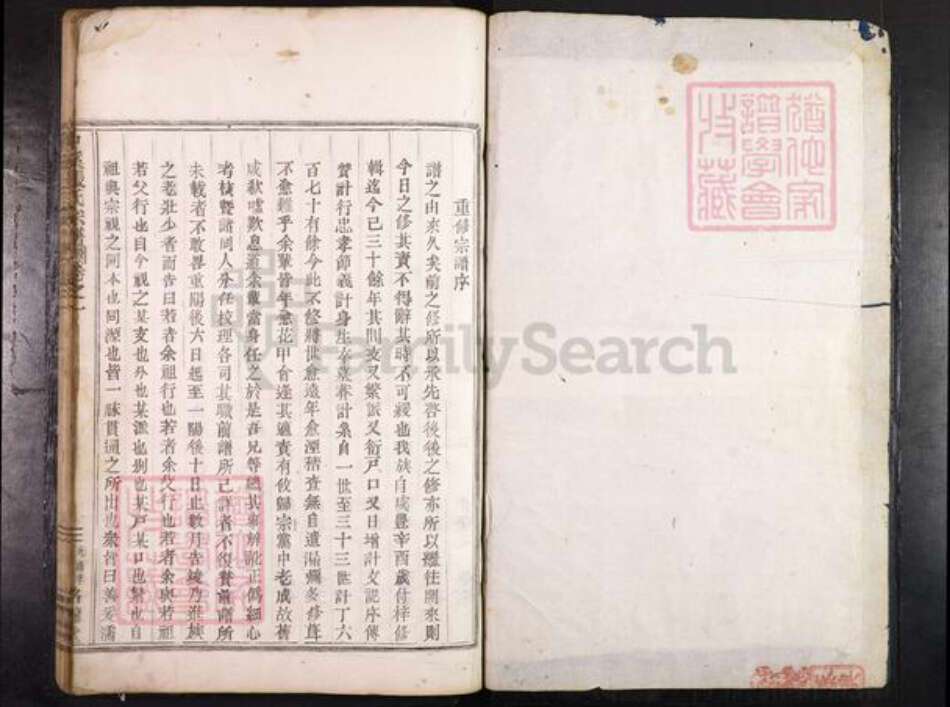 重修宗譜序
譜之由來久矣前之修所以承先啓後後之修亦所以繼往開來則
今日之修其責不得辭其時不可緩也我族自咸豐辛酉歲付梓修
輯迄今已三十餘年其間支又繁派又衍戶口又日增計文認序傳
賛計行忠孝節義計身生卒墓葬計系自一世至三十三世計丁六
百七十有餘今此不修將世愈遠年愈湮稽查無自遺漏彌多修葺
不愈難乎余輩皆年慕花甲會逢其適責有攸歸宗黨中老成故舊
成欷噓歎息道余輩當身任之於是吾兄等總其事辨訛正偽細心
考核暨諸同人分任校理各司其職前譜所已詳者不復贅前譜所
未載者不敢畧重陽後六日起至一陽後十日止數月告竣乃進族
之老壯少者而告曰若者余祖行也若者余父行也若者余與若祖
若父行也自今視之某支也某派也某戶某口也自
祖與宗視之同本也同源也皆一脉貫通之所出也衆皆曰善爰濡
猶他家
譜學會
收藏
FamilySearch